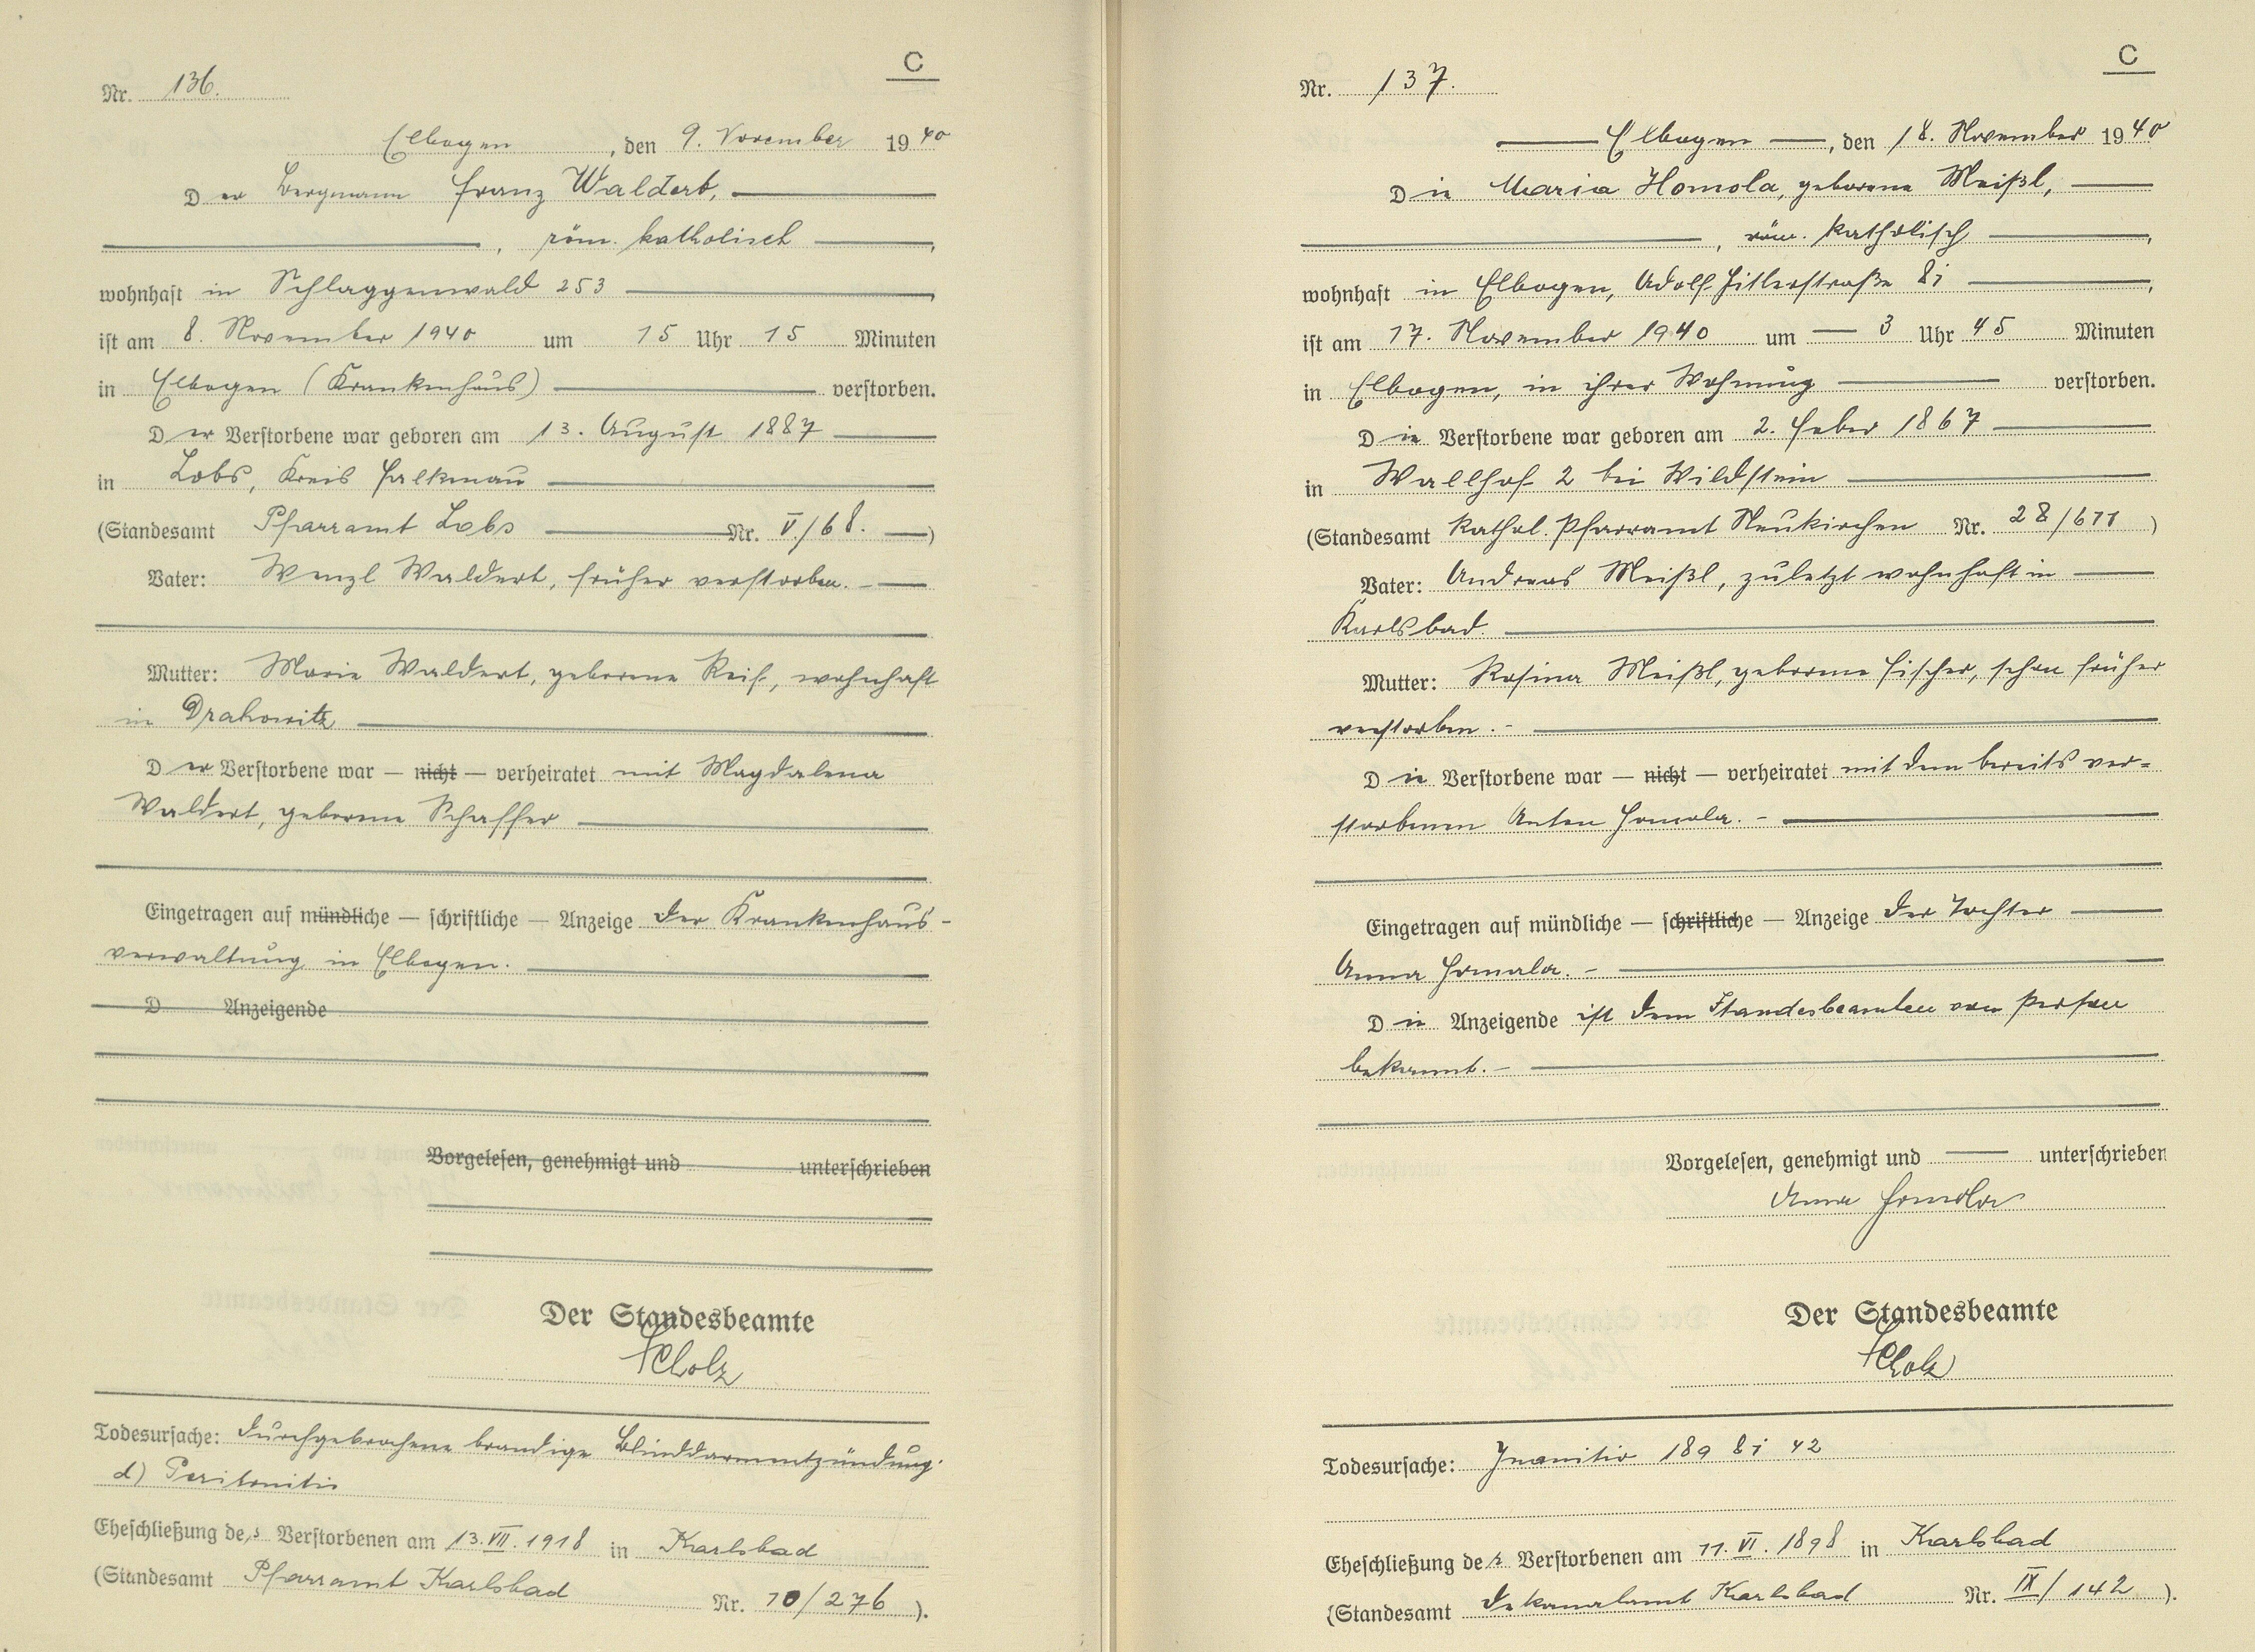 C
Nr. 136.
Elbogen, den 9. November 1940
Der Bergmann Franz Waldert,
, röm. katholisch,
wohnhaft in Schlaggenwald 253
ist am 8. November 1940 um 15 Uhr 15 Minuten
in Elbogen (Krankenhaus) verstorben.
Der Verstorbene war geboren am 13. August 1887
in Lobs, Kreis Falkenau
(Standesamt Pfarramt Lobs Nr. V./68. )
Vater: Wenzl Waldert, früher verstorben.
Mutter: Marie Waldert, geborene Reif, wohnhaft
in Drahowitz
Der Verstorbene war — nicht — verheiratet mit Magdalena
Waldert, geborene Schaffer
Eingetragen auf mündliche — schriftliche — Anzeige der Krankenhaus-
verwaltung in Elbogen.
D Anzeigende
Vorgelesen, genehmigt und unterschrieben
Der Standesbeamte
Scholz
Todesursache: durchgebrochene brandige Blinddarmentzündung.
d) Peritonitis
Eheschließung des Verstorbenen am 13.VII.1918 in Karlsbad
(Standesamt Pfarramt Karlsbad Nr. 10/276 ).
C
Nr. 137.
Elbogen, den 18. November 1940
Die Maria Homola, geborene Meißl,
, röm. katholisch,
wohnhaft in Elbogen, Adolf Hitlerstraße 81,
ist am 17. November 1940 um 3 Uhr 45 Minuten
in Elbogen, in ihrer Wohnung verstorben.
Die Verstorbene war geboren am 2. Feber 1867
in Wallhof 2 bei Wildstein
(Standesamt Kathol. Pfarramt Neukirchen Nr. 28/611 )
Vater: Andreas Meißl, zuletzt wohnhaft in
Karlsbad.
Mutter: Rosina Meißl, geborene Fischer, schon früher
verstorben.-
Die Verstorbene war — nicht — verheiratet mit dem bereits ver=
storbenen Anton Homola.-
Eingetragen auf mündliche — schriftliche — Anzeige der Tochter
Anna Homola.-
Die Anzeigende ist dem Standesbeamten von Person
bekannt.-
Vorgelesen, genehmigt und unterschrieben
Anna Homola
Der Standesbeamte
Scholz
Todesursache: Inanitio 189 81 42
Eheschließung der Verstorbenen am 11.VI.1898 in Karlsbad
(Standesamt Dekanalamt Karlsbad Nr. IX/142 ).